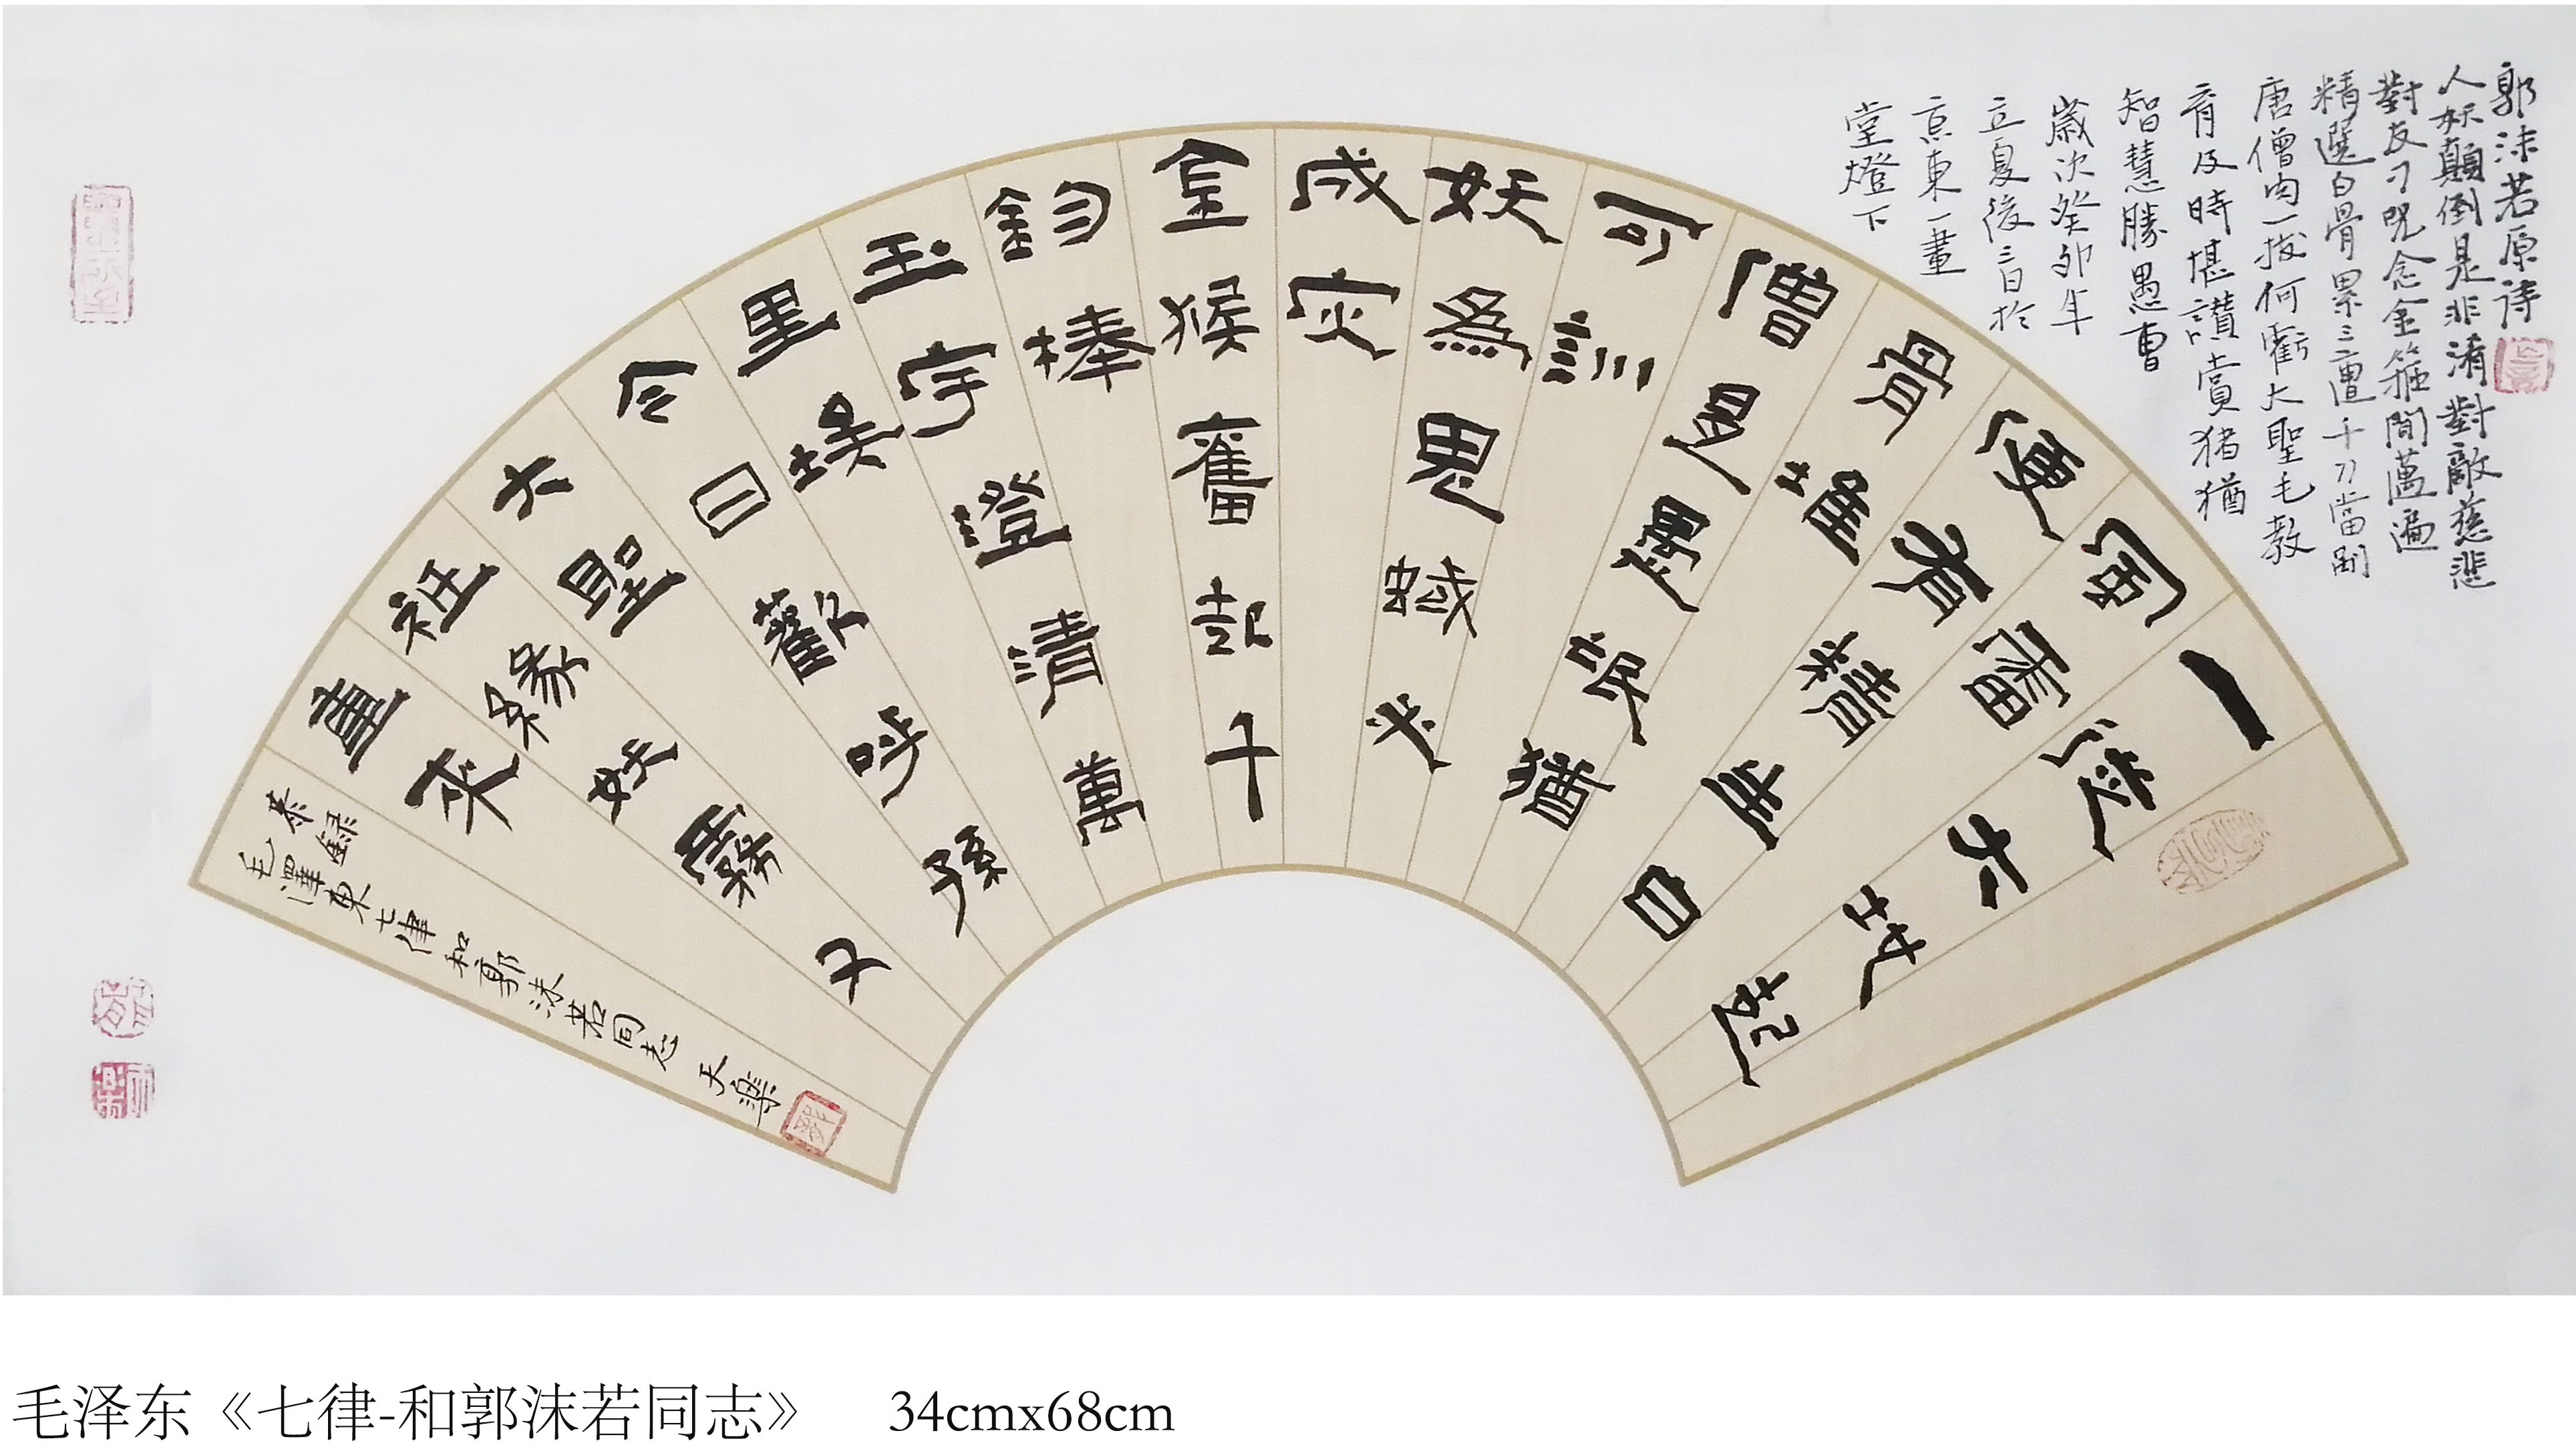 郭沫若原詩
人妖顛倒是非淆對敵慈悲
對友刁咒念金箍聞萬遍
精選白骨累三遭千刀當剮
唐僧肉一拔何虧大聖毛教
育及時堪讚賞猪猶
智慧勝愚曹
歲次癸卯年
立夏後三日於
京東一畫
堂燈下
一從大地起
風雷
便有精生白
骨堆
僧是愚氓猶
可訓
妖為鬼蜮必
成災
金猴奮起千
鈞棒
玉宇澄清萬
里埃
今日歡呼孫
大聖
祇緣妖霧又
重來
恭錄
毛澤東七律和郭沫若同志 天樂
毛泽东《七律-和郭沫若同志》 34cmx68cm